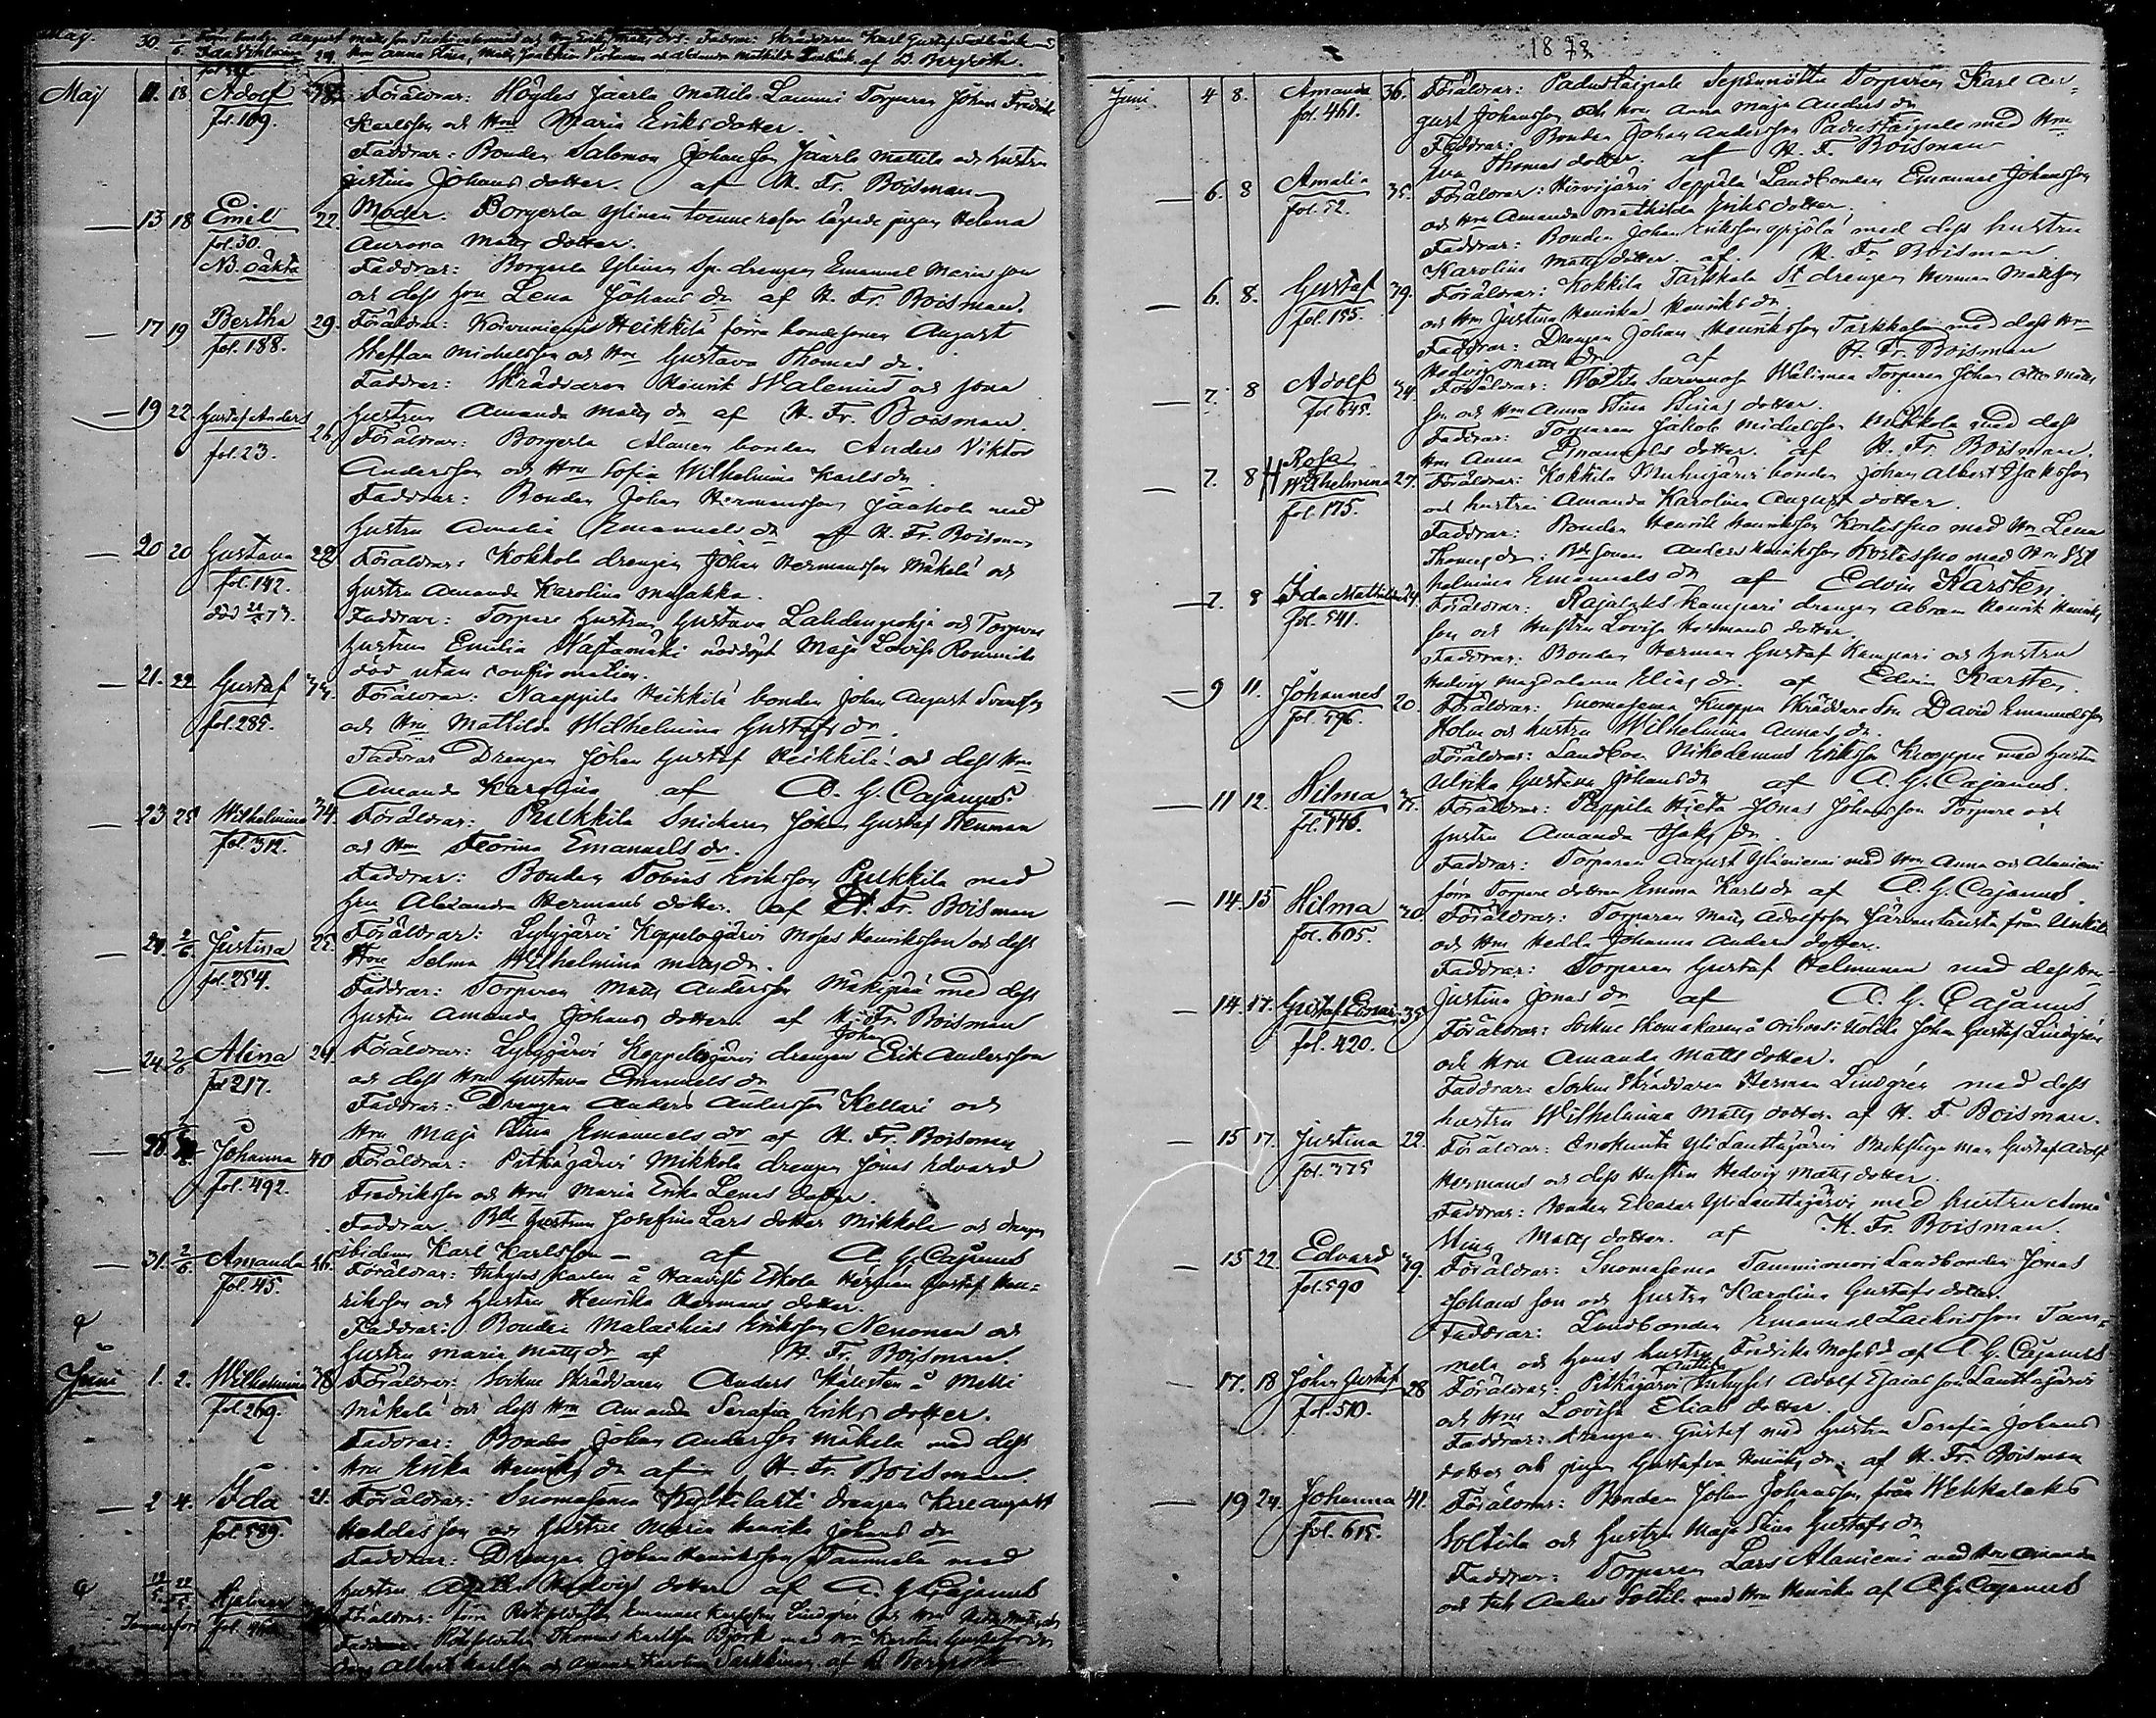 May. 30. August
Ida Wilhelmina 29. af B. Bergroth.
Maj 11. 18 Adolf 38. Föräldrar: Höydes Jaarla Mattila Lammi Torparen Johan Fredrik
fol. 109. Karlsson och Hru Maria Eriksdotter.
Faddrar: Bonden Salomon Johansson Jaarla Mattila och hustru
Justina Johans dotter. af K. Fr. Boisman
— 13 18 Emil 22. Moder: Borgerla Ylinen pigan Helena
fol. 30. Aurora Matts dotter.
NB. oäkta Faddrar: Borgerla Ylinen Sp. drengen Emanuel
och dess hru Lena Johans dr af K. Fr. Boisman.
— 17 19 Bertha 29. Föräldrar: Koivuniemis Heikkilä förra bondesonen August
fol. 188. Steffan Michelsson och Hru Gustava Thomas dr.
Faddrar: Skräddaren Henrik Walenius och
— 19 22 Gustaf Anders hustrun Amanda Matts dr af K. Fr. Boisman.
26. Föräldrar: Borgerla Alanen bonden Anders Viktor
fol. 23. Andersson och Hru Sofia Wilhelmina Karls dr.
Faddrar: Bonden Johan Hermansson Jaakola med
hustru Amalia Emanuels dr af K. Fr. Boisman
— 20 20 Gustava 22 Föräldrar: Kokkola drengen Johan Hermansson Mäkelä och
fol. 142. hustru Amanda Karolina
död Faddrar: Torpare hustrun Gustava Lahdenpohja och Torpare
hustrun Emilia Wastamäki nöddöpt Maja Lovisa
död utan confirmation.
— 21. 22 Gustaf 33. Föräldrar: Naappila Heikkilä bonden Johan August
fol. 285. och Hru Mathilda Wilhelmina Gustafs dr.
Faddrar Drengen Johan Gustaf Heikkilä och dess Hru
Amanda Karolina af A. G. Cajanus.
— 23 25 Wilhelmina 34. Föräldrar: Pulkkila Snickaren Johan Gustaf Stenman
fol. 312. och Hru Florina Emanuels dr.
Faddrar: Bonden Tobias Eriksson Pulkkila med
hru Alexandra Hermans dotter. af K. Fr. Boisman
— 24. 2/6 Justina 22. Föräldrar: Lyhyjärvi Koppelojärvi Moses Henriksson och dess
Hru Selma Wilhelmina Matts dr.
fol. 254. Faddrar: Torparen Matts Andersson Mäkipää med dess
hustru Amanda Johans dotter af K. Fr. Boisman
— 24 2/6 Alina 24. Föräldrar: Lyhyjärvi Koppelojärvi drengen Johan Erik Andersson
fol. 217. och dess Hru Gustava Emanuels dr
Faddrar: Drengen Anders Andersson Kellari och
Hru Maja Stina Emanuels dr af K. Fr. Boisman
— 28 Johanna 40 Föräldrar: Pitkäjärvi Mikkola drengen Jonas Edvard
fol. 492. Fredriksson och Hru Maria Erika Lenas dotter.
Faddrar Bde hustrun Josefina Lars dotter Mikkola och drengen
— 31. 2/6 Amanda ibidem Karl Karlsson — af A. G. Cajanus
fol. 45. 46. Föräldrar: Inhyses Karlen å Haavisto Eskola Herman Gustaf Hen-
riksson och hustru Henrika Hermans dotter.
Faddrar: Bonden Malachias Eriksson Nenonen och
hustru Maria Matts dr af K. Fr. Boisman.
Juni 1. 2. Wilhelmina 38 Föräldrar: Sockne Skräddaren Anders å
fol. 269. Mäkelä och dess Hru Amanda Serafia Eriks dotter.
Faddrar: Bonden Johan Andersson Mäkelä med dess
Hru Erika Henriks dr af K. Fr. Boisman
— 2 4. Ida 21. Föräldrar: Suomasema drengen Karl August
fol. 589. Heddasson och hustru Maria Henrika Johans dr
Faddrar: Drengen Johan Henriksson Tammela med
hustru dotter af A. G. Cajanus
Hjalmar Föräldrar: förre Emanuel Karlsson Lindgren och Hru
Tammerfors Faddrar: Thomas Karlsson Björk med Hru Karolina Gustafs dr
af B. Bergroth
1873
Juni 4 8. Amanda 36. Föräldrar: Padustaipale Torparen Karl Au-
fol. 461. gust Johansson och hru Anna Maja Anders dr
Faddrar: Bonden Johan Andersson Padustaipale med Hru
Eva Thomas dotter. af K. F. Boisman
— 6. 8 Amalia 35. Föräldrar: Hirvijärvi Seppälä Landbonden Emanuel Johansson
fol. 52. och Hru Amanda Mathilda Eriks dotter.
Faddrar: Bonden Johan Eriksson med dess hustru
Karolina Matts dotter. af K. Fr. Boisman
— 6. 8. Gustaf 39. Föräldrar: Kokkila Tarkkala St drengen Herman Matsson
fol. 155. och Hru Justina Henrika Henriks dr.
Faddrar: Drengen Johan Henriksson Tarkkala med dess Hru
Hedvig Matts dr af K. Fr. Boisman
— 7. 8 Adolf 24. Föräldrar: Torparen Johan Otto Matts
fol 645. son och Hru Anna Stina dotter.
Faddrar: Torparen Jakob Michelsson Mikkola med dess
Hru Anna Emanuels dotter. af K. Fr. Boisman.
— 7. 8 Rosa Wilhelmina 27. Föräldrar: Kokkila bonden Johan Albert Isaksson
fol. 175. och hustru Amanda Karolina August dotter.
Faddrar: Bonden Henrik Henriksson Kortessuo med Hru Lena
Thomas dr; Bde sonen Anders Henriksson Kortessuo med Hru Wil
helmina Emanuels dr af Edvin Karsten
— 7. 8 Ida Mathilda 24. Föräldrar: Rajalaks Kampari drengen Abram Henrik Henriks
fol. 541. son och Hustru Lovisa Hermans dotter.
Faddrar: Bonden Herman Gustaf Kampari och hustru
Hedvig Magdalena Elias dr. af Edvin Karsten.
— 9 11. Johannes 20. Föräldrar: Suomasema Kuoppa Skräddare Son David Emanuelsson
fol. 596. Holm och hustru Wilhelmina Annas dr.
Föräldrar: Landbon Nikodemus Eriksson Kuoppa med hustru
Ulrika Gustava Johans dr af A. G. Cajanus.
— 11 12. Hilma 37. Föräldrar: Pappila Hieta Jonas Johansson Torpare och
fol. 746. hustru Amanda Isaks dr.
Faddrar: Torparen August Yliniemi med Hru Anna och Alaniemi
förra Torpare dottren Emma Karls dr af A. G. Cajanus.
— 14. 15 Hilma 20 Föräldrar: Torparen Matts Adolfsson Järventausta från Unkila
fol. 605. och Hru Hedda Johanna Anders dotter.
Faddrar: Torparen Gustaf Helminen med dess Hru
Justina Jonas dr af A. G. Cajanus
— 14. 17. Gustaf Einar 35 Föräldrar: Sockne Skomakaren å Orihvesi Uotila Johan Gustaf Lindgren
fol. 420. och Hru Amanda Matts dotter.
Faddrar: Sockne Skräddaren Herman Lindgren med dess
hustru Wilhelmina Matts dotter. af K. F. Boisman.
— 15 17. Justina 22. Föräldrar: Onnokunta Yli Lauttajärvi Backstuguman Gustaf Adolf
fol. 375 Hermans och dess Hustru Hedvig Matts dotter.
Faddrar: Bonden Eleasar Yli Lauttajärvi med hustru Anna
Stina Matts dotter. af K. Fr. Boisman.
— 15 22. Edvard 39. Föräldrar: Suomasema Tammionori Landbonden Jonas
fol. 590 Johansson och hustru Karolina Gustafs dotter.
Faddrar: Landbonden Emanuel Zachrisson Tam-
mela och hans hustru Fredrika Moses d af A. G. Cajanus
— 17. 18 Johan Gustaf 28 Föräldrar: Pitkäjärvi Anttila Inhyses Adolf Esaias son Lauttajärvi
fol. 510. och Hru Lovisa Elias dotter.
Faddrar: drengen Gustaf med hustru Serafia Johans
dotter och pigan Gustafva Henriks dr. af K. Fr. Boisman
— 19 24. Johanna 41. Föräldrar: Bonden Johan Johansson från Wehkalaks
fol. 615. Soltila och hustru Maja Stina Gustafs dr
Faddrar: Torparen Lars Alaniemi med Hru Amanda
och Anders Soltila med Hru Henrika af A. G. Cajanus